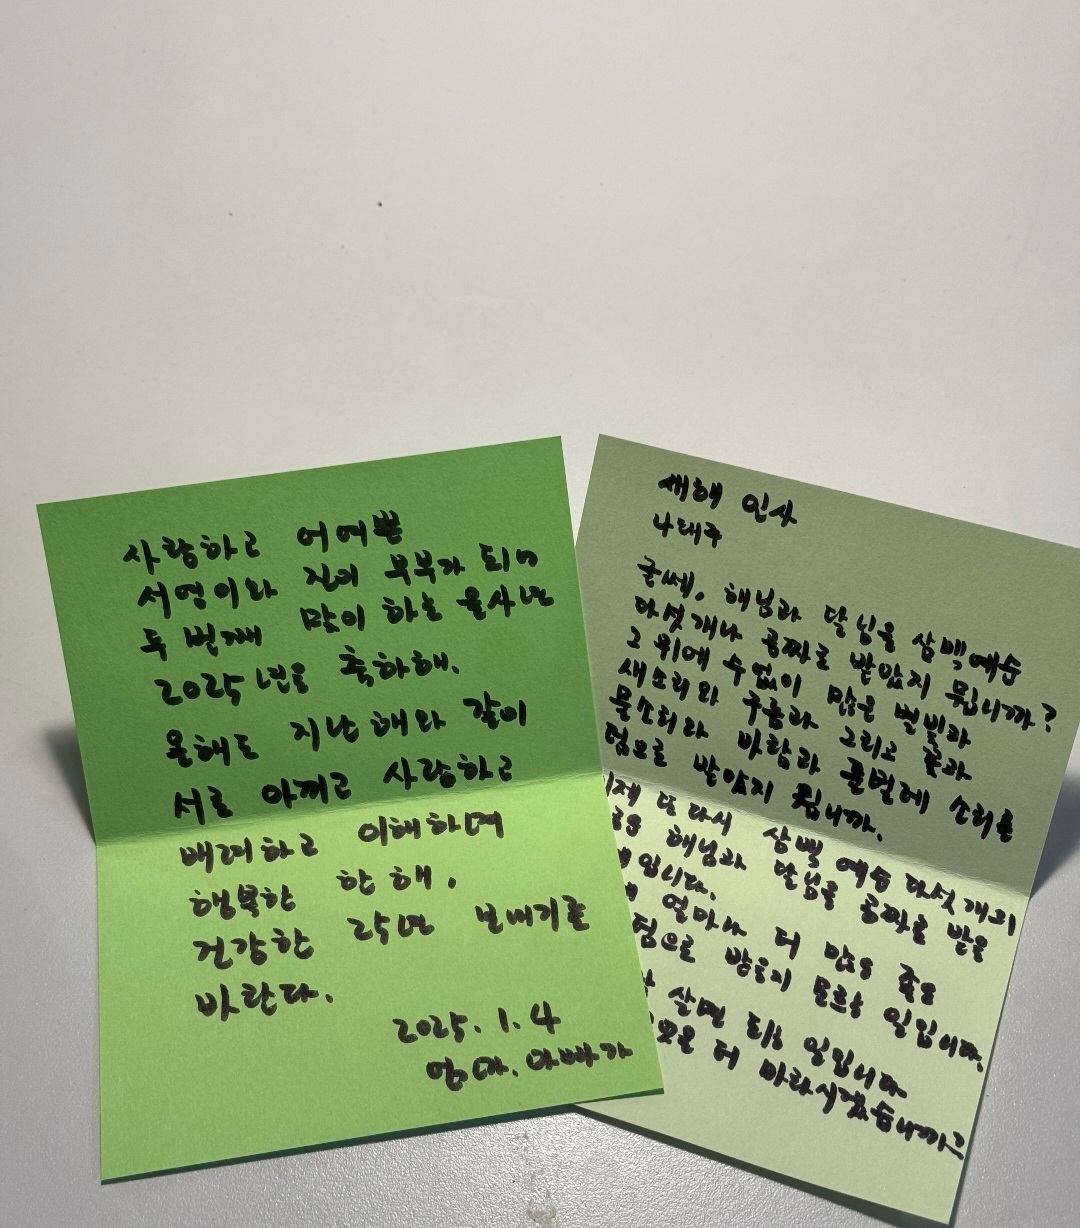 사랑하고 어여쁜
서영이와 진이 부부가 되어
두 번째 맞이 하는 을사년
2025년을 축하해.
올해도 지난 해와 같이
서로 아끼고 사랑하고
배려하고 이해하며
행복한 한 해.
건강한 25년 보내기를
바란다.
2025. 1. 4
엄마, 아빠가
새해 인사
나태주
글쎄, 해님과 달님을 삼백예순
다섯 개나 공짜로 받았지 뭡니까?
그 위에 수없이 많은 별빛과
새소리와 구름과 그리고 꽃과
물소리와 바람과 풀벌레 소리를
덤으로 받았지 뭡니까.
또 다시 삼백 예순 다섯 개의
해님과 달님을 공짜로 받을
얼마나 더 많은 좋은
덤으로 받을지 모르는 일입니다.
살면 되는 일입니다
더 바라시겠습니까?